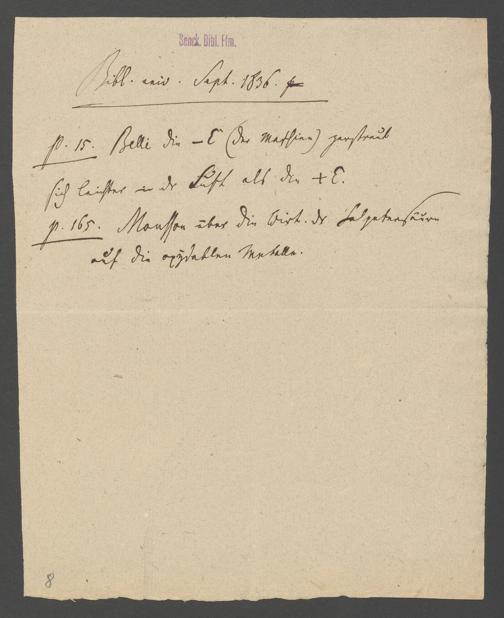 Senck. Bibl. Ffm.
Bibl. univ. Sept. 1836.
p. 15. Belli die – E (der Maschine) zerstreut
sich leichter in der Luft als die + E.
p. 165. Mousson über die Wirk. der Salpetersäure
auf die oxydablen Metalle.
8